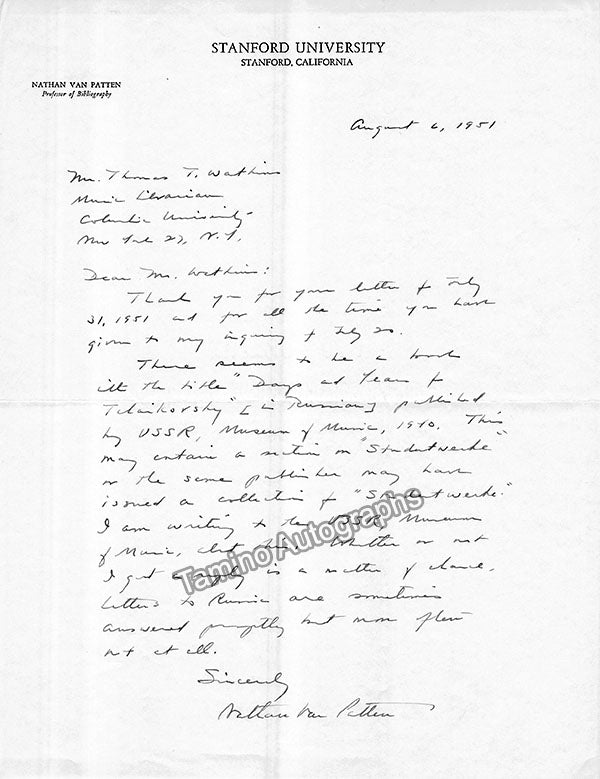 STANFORD UNIVERSITY
STANFORD, CALIFORNIA
NATHAN VAN PATTEN
Professor of Bibliography
August 6, 1951
Mr. Thomas T. Watkins
Music Librarian
Columbia University
New York 27, N.Y.
Dear Mr. Watkins:
Thank you for your letter of July
31, 1951 and for all the time you have
given to my inquiry of July 20.
There seems to be a book
with the title "Days and Years of
Tchaikovsky" [in Russian] published
by USSR, Museum of Music, 1940. This
may contain a section on "Studentwerke"
or the same publisher may have
issued a collection of "Studentwerke."
I am writing to the USSR, Museum
of Music, about this. Whether or not
I get a reply is a matter of chance.
Letters to Russia are sometimes
answered promptly but more often
not at all.
Sincerely
Nathan Van Patten
Tamino Autographs